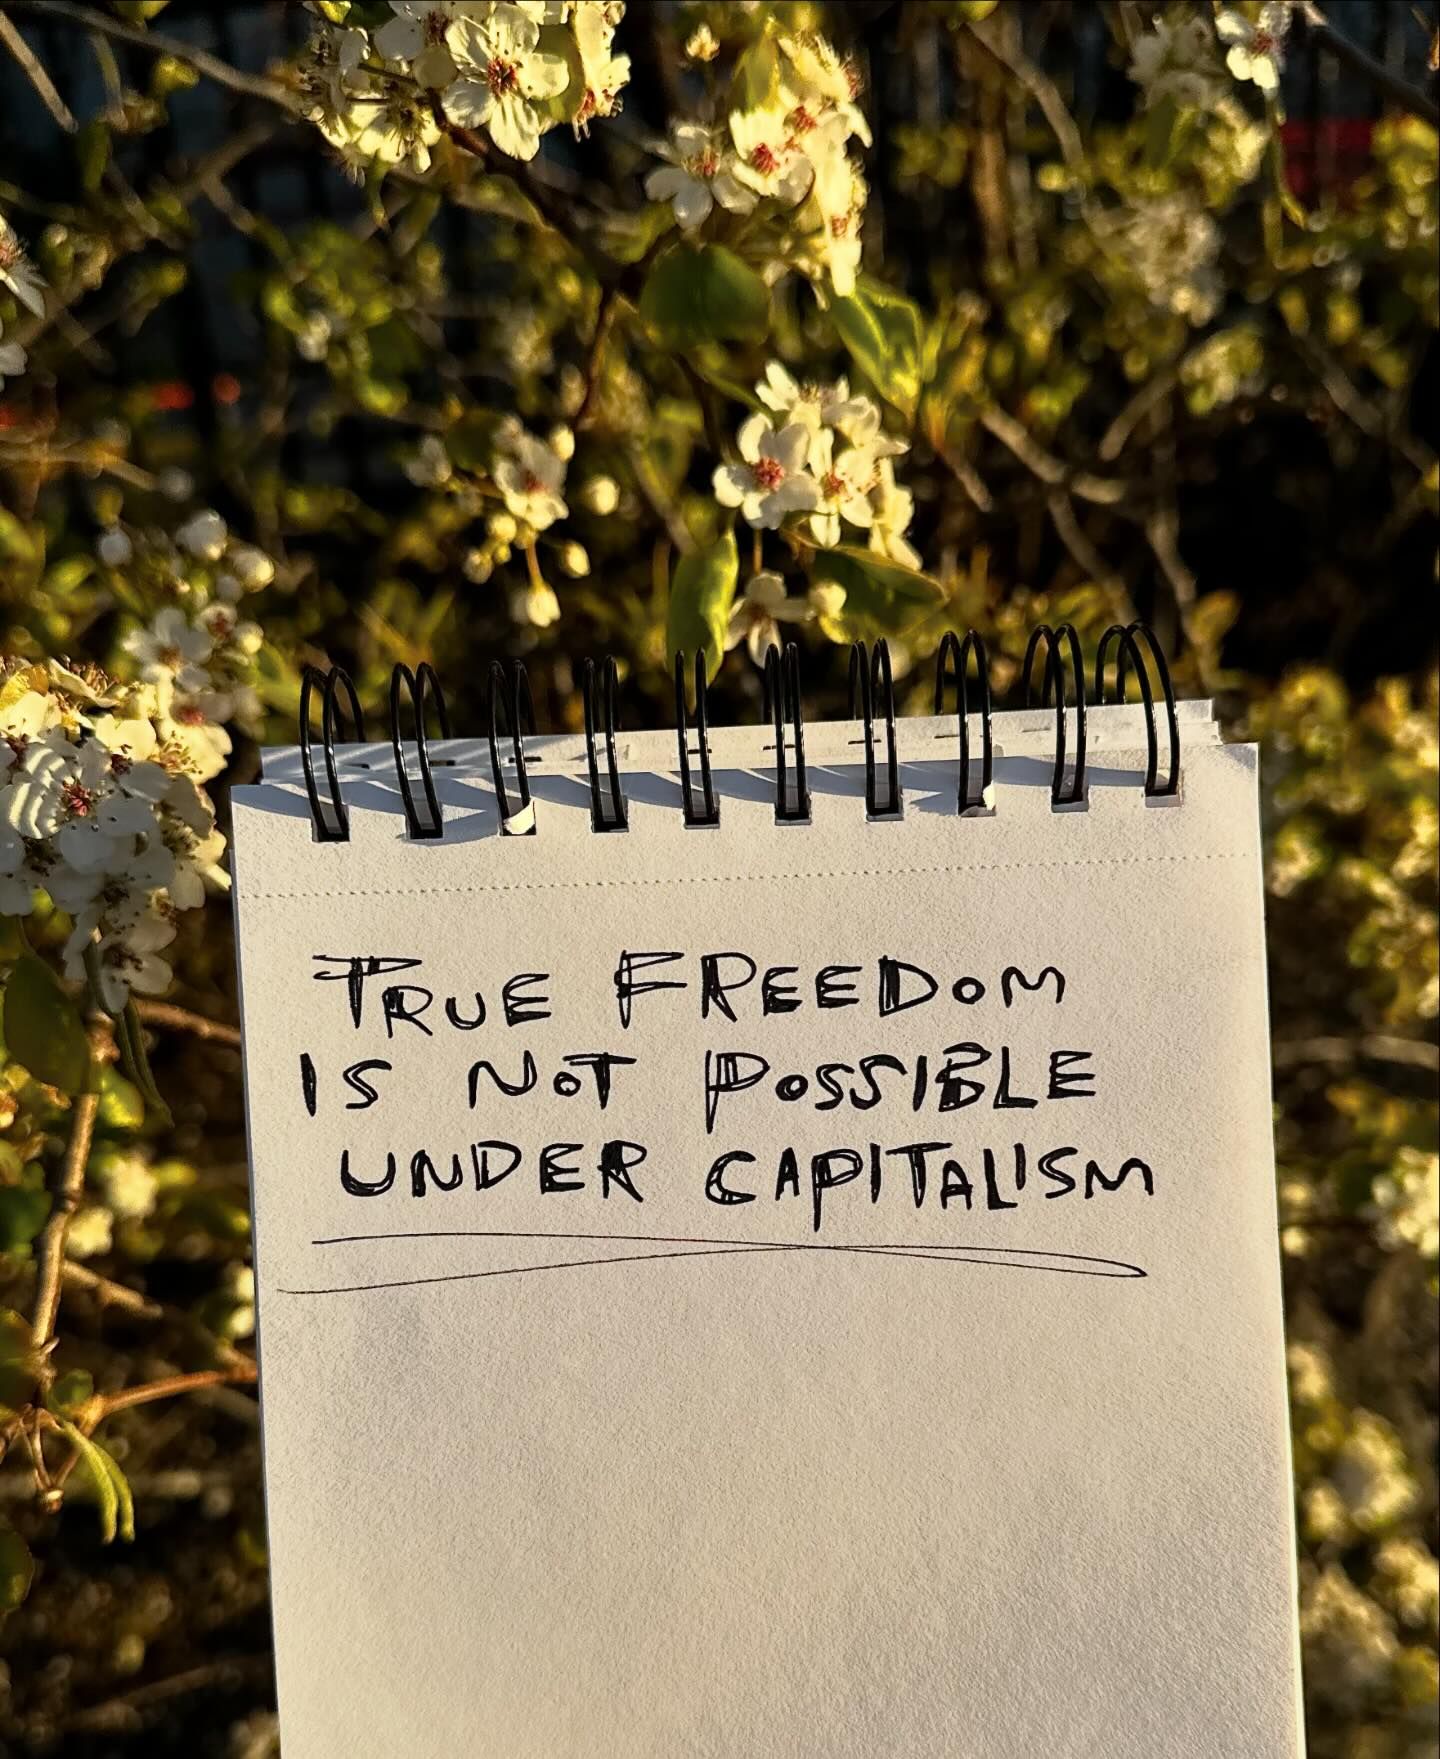 TRUE FREEDOM
IS NOT POSSIBLE
UNDER CAPITALISM